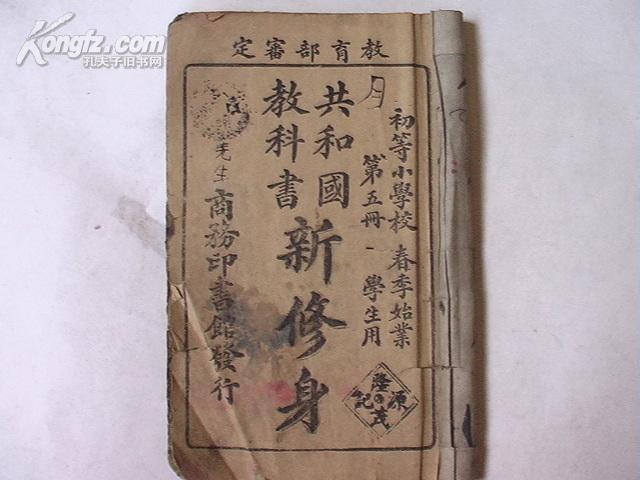 Kongfz.com
孔夫子旧书网
教育部審定
初等小學校 春季始業
第五冊 學生用
共和國
教科書
新修身
商務印書館發行
先生
隆
源
茂
記